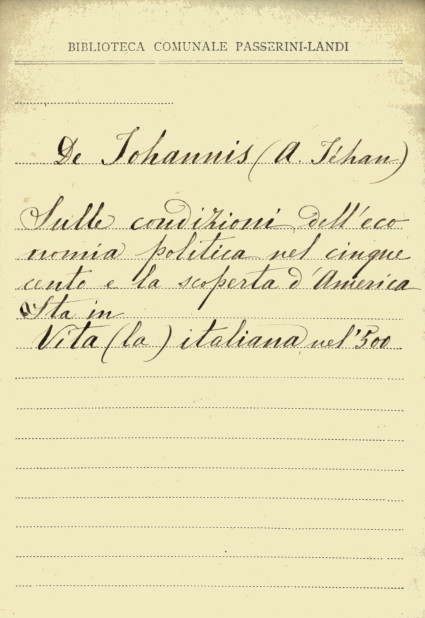 BIBLIOTECA COMUNALE PASSERINI-LANDI
De Johannis (A. Jéhan)
Sulle condizioni dell'eco
nomia politica nel cinque
cento e la scoperta d'America
Sta in
Vita (la) italiana nel '500